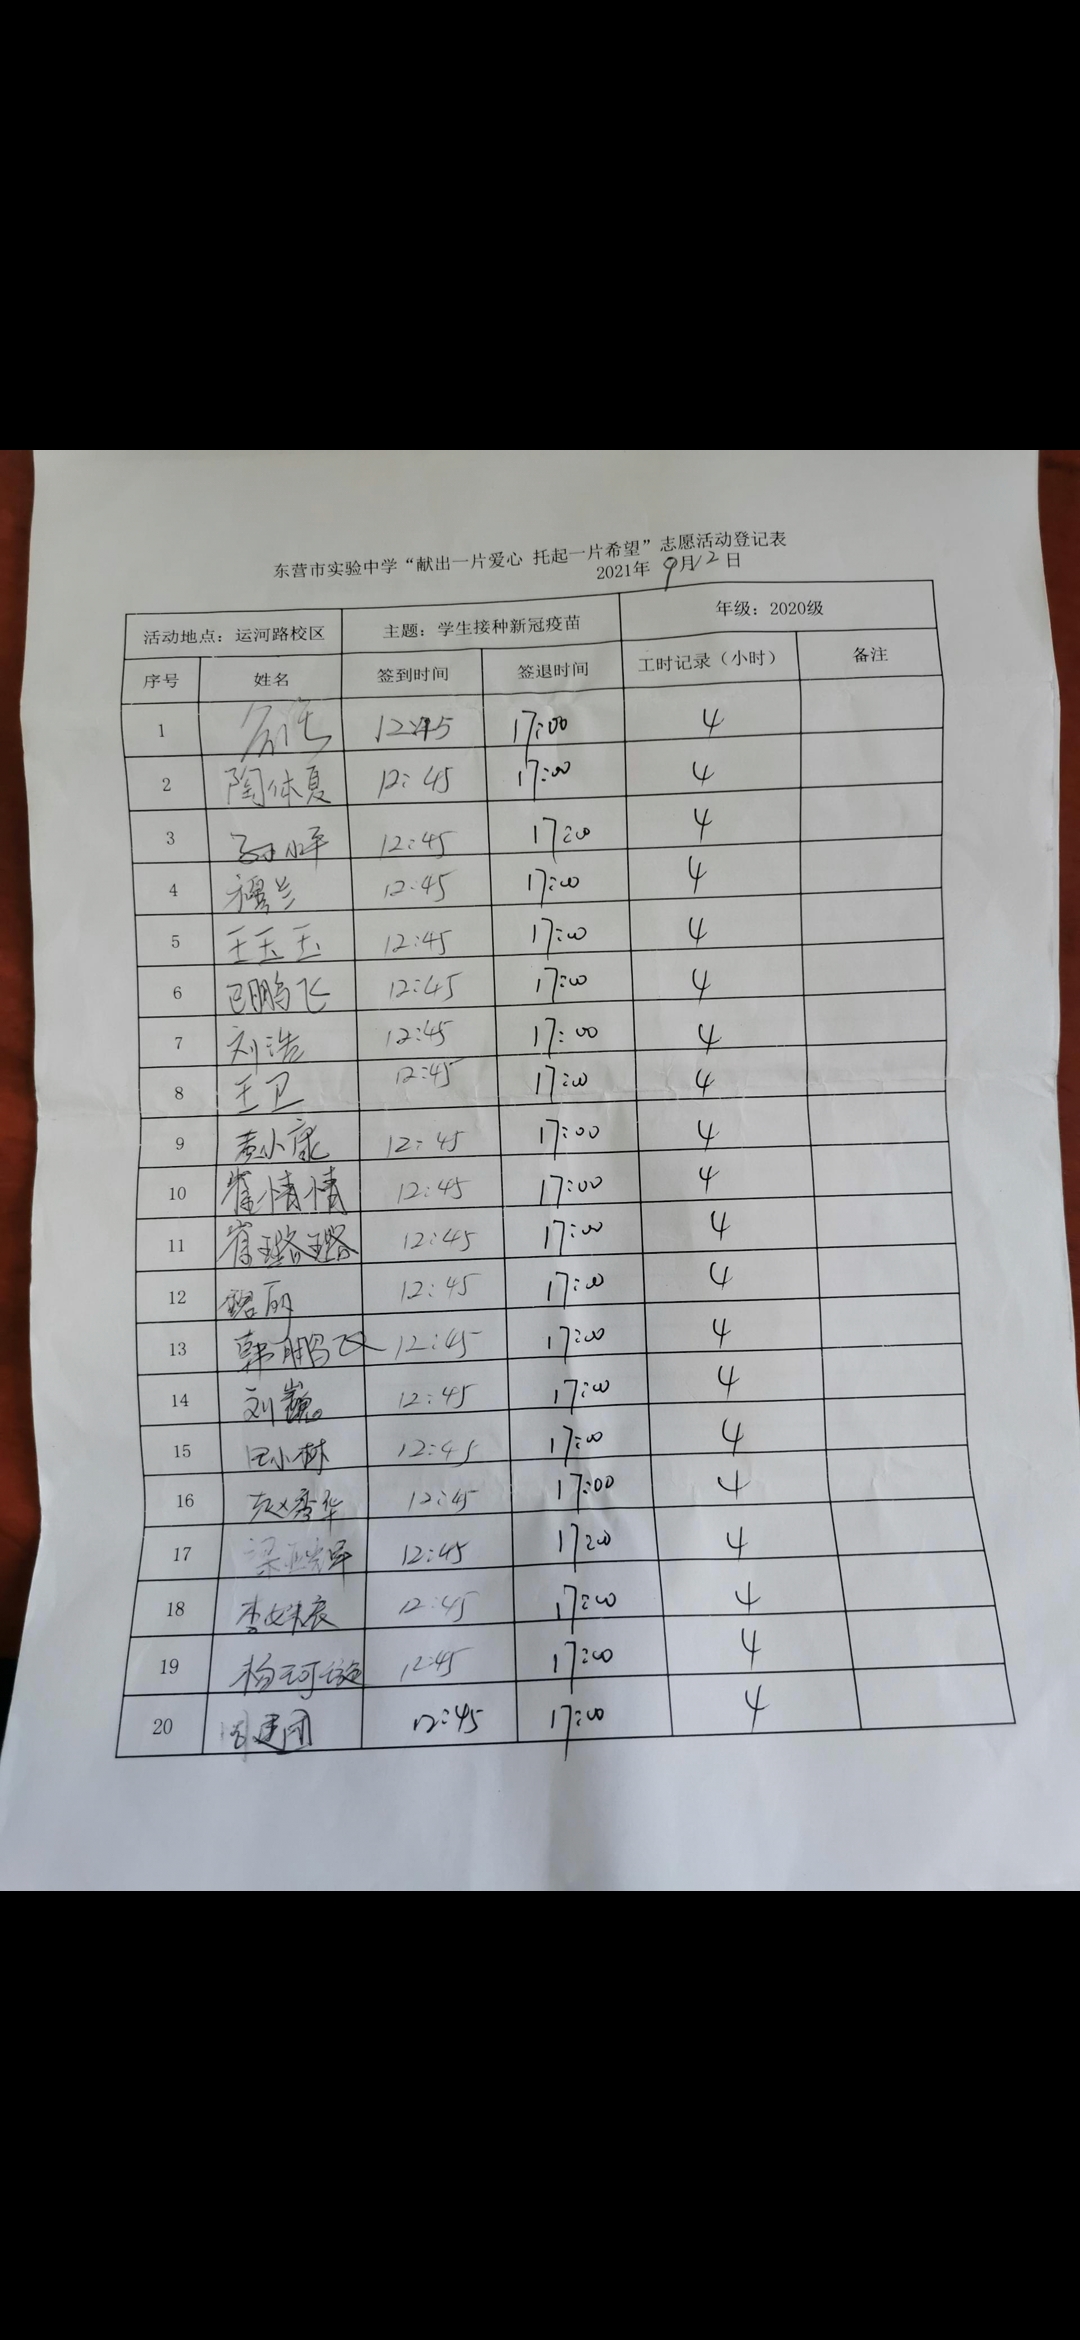 东营市实验中学“献出一片爱心 托起一片希望”志愿活动登记表
2021年 9月12日
活动地点：运河路校区 主题：学生接种新冠疫苗 年级：2020级
序号 姓名 签到时间 签退时间 工时记录（小时） 备注
1 12:45 17:00 4
2 陶休夏 12:45 17:00 4
3 孙小平 12:45 17:00 4
4 穆兰 12:45 17:00 4
5 王玉玉 12:45 17:00 4
6 巴鹏飞 12:45 17:00 4
7 刘浩 12:45 17:00 4
8 王卫 12:45 17:00 4
9 黄小康 12:45 17:00 4
10 崔情情 12:45 17:00 4
11 崔璐璐 12:45 17:00 4
12 12:45 17:00 4
13 韩鹏飞 12:45 17:00 4
14 刘巍 12:45 17:00 4
15 田小林 12:45 17:00 4
16 赵秀华 12:45 17:00 4
17 12:45 17:00 4
18 12:45 17:00 4
19 12:45 17:00 4
20 12:45 17:00 4